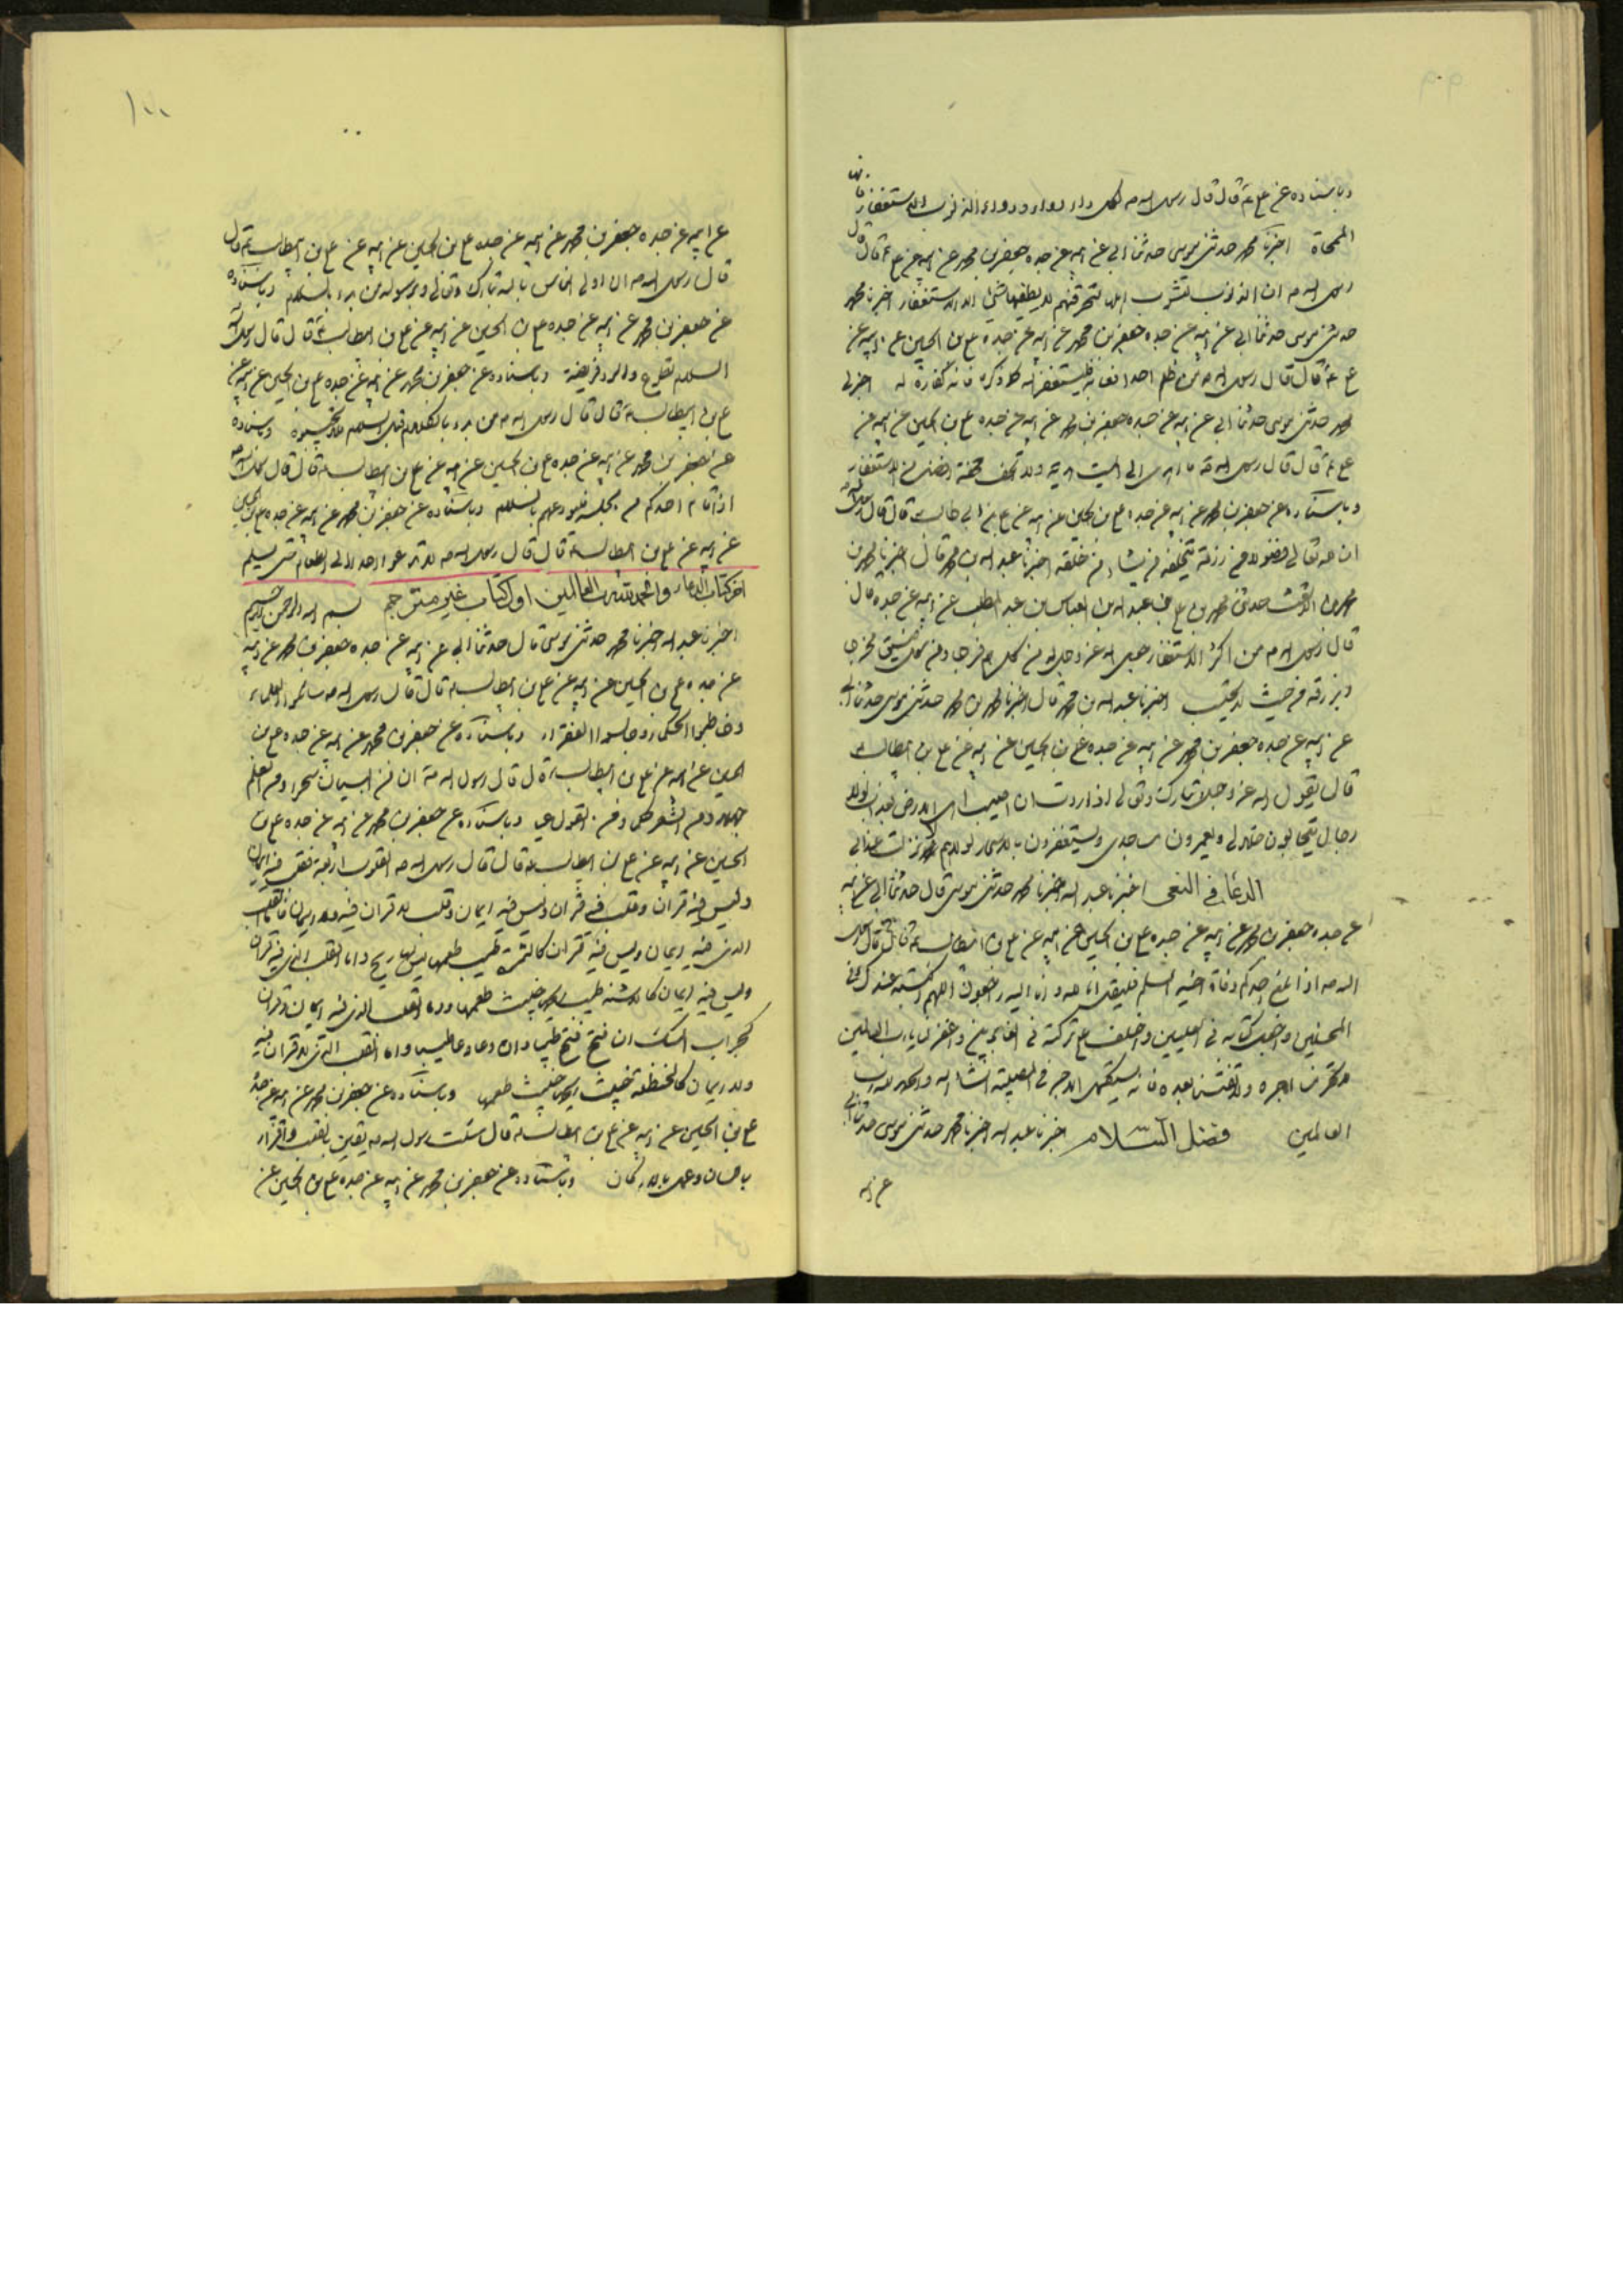 وباسناده عن علي ع قال قال رسول اله ص لكل داء دواء ودواء الذنوب الاستغفار فانها
الممحاة اخبرنا محمد حدثني موسى حدثنا ابي عن ابيه عن جده جعفر بن محمد عن ابيه عن علي ع قال قال
رسول اله ص ان الذنوب تشوب اهلها لتحرقنهم لا يطفيها شئ الا الاستغفار اخبرنا محمد
حدثني موسى حدثنا ابي عن ابيه عن جده جعفر بن محمد عن ابيه عن جده علي بن الحسين عن ابيه عن
علي ع قال قال رسول اله ص من ظلم احدا ففاته فليستغفر اله كلما ذكره فانه كفارة له اخبرني
محمد حدثني موسى حدثنا ابي عن ابيه عن جده جعفر بن محمد عن ابيه عن جده علي بن الحسين عن ابيه عن
علي ع قال قال رسول اله ص ما اهدى الى الميت هدية ولا تحف تحفة افضل من الاستغفار
وباسناده عن جعفر بن محمد عن ابيه عن جده علي بن الحسين عن ابيه عن علي بن ابي طالب ع قال قال رسول اله
ان له تعالى فضولا من رزقه ينحله من يشاء من خلقه اخبرنا عبد اله بن محمد قال اخبرنا محمد بن
محمد بن الاشعث حدثني محمد بن علي بن عبد اله بن العباس بن عبد المطلب عن ابيه عن جده قال
قال رسول اله ص من اكثر الاستغفار جعل اله عز وجل له من كل هم فرجا ومن كل ضيق مخرجا
ويرزقه من حيث لا يحتسب اخبرنا عبد اله بن محمد قال اخبرنا محمد بن محمد حدثني موسى حدثنا ابي
عن ابيه عن جده جعفر بن محمد عن ابيه عن جده علي بن الحسين عن ابيه عن علي بن ابيطالب ع
قال يقول اله عز وجل تبارك وتعالى اذا اردت ان اصيب اهل الارض بعذاب لولا
رجال يتحابون حلالي ويعمرون مساجدي ويستغفرون بالاسحار لولاهم لانزلت عذابي
الدعاء في النعى اخبرنا عبد اله اخبرنا محمد حدثني موسى قال حدثنا ابي عن ابيه
عن جده جعفر بن محمد عن ابيه عن جده علي بن الحسين عن ابيه عن علي بن ابيطالب ع قال قال رسول
اله ص اذا بلغ احدكم وفاة اخيه المسلم فليقل انا له وانا اليه راجعون اللهم اكتبه عندك في
المحسنين واجعل كتابه في العليين واخلف على تركته في الغابرين واغفر لنا يا رب العالمين
ولا تحرمنا اجره ولا تفتنا بعده فانه يستكمل الاجر في المصيبة انشاء اله والحمد له رب
العالمين فضل السلام اخبرنا عبد اله اخبرنا محمد حدثني موسى حدثنا ابي
عن ابيه
١٠٠
عن ابيه عن جده جعفر بن محمد عن ابيه عن جده علي بن الحسين عن ابيه عن علي بن ابيطالب ع قال
قال رسول اله ص ان اولى الناس باله تبارك وتعالى وبرسوله من بدء بالسلام وباسناده
عن جعفر بن محمد عن ابيه عن جده علي بن الحسين عن ابيه عن علي بن ابيطالب ع قال قال رسول اله
السلام تطوع والرد فريضة وباسناده عن جعفر بن محمد عن ابيه عن جده علي بن الحسين عن ابيه عن
علي بن ابيطالب ع قال قال رسول اله ص من بدء بالكلام قبل السلام فلا تجيبوه وباسناده
عن جعفر بن محمد عن ابيه عن جده علي بن الحسين عن ابيه عن علي بن ابيطالب ع قال قال رسول اله ص
اذا قام احدكم من مجلسه فليودعهم بالسلام وباسناده عن جعفر بن محمد عن ابيه عن جده علي بن الحسين
عن ابيه عن علي بن ابيطالب ع قال قال رسول اله ص لا تدعوا احدا الى الطعام حتى يسلم
اخر كتاب الدعاء والحمد لله رب العالمين اول كتاب غير مترجم بسم اله الرحمن الرحيم
اخبرنا عبد اله اخبرنا محمد حدثني موسى قال حدثنا ابي عن ابيه عن جده جعفر بن محمد عن ابيه
عن جده علي بن الحسين عن ابيه عن علي بن ابيطالب ع قال قال رسول اله ص سائلوا العلماء
وخاطبوا الحكماء وجالسوا الفقراء وباسناده عن جعفر بن محمد عن ابيه عن جده علي بن
الحسين عن ابيه عن علي بن ابيطالب ع قال قال رسول اله ص ان من البيان سحرا ومن العلم
جهلا ومن الشعر حكما ومن القول عيا وباسناده عن جعفر بن محمد عن ابيه عن جده علي بن
الحسين عن ابيه عن علي بن ابيطالب ع قال قال رسول اله ص القلوب اربعة فقلب فيه ايمان
وليس فيه قران وقلب فيه قران وليس فيه ايمان وقلب لا قران فيه ولا ايمان فاما القلب
الذي فيه ايمان وليس فيه قران كالثمرة طيب طعمها ليس لها ريح واما القلب الذي فيه قران
وليس فيه ايمان كالاشنة طيب ريحها خبيث طعمها واما القلب الذي فيه ايمان وقران
كجراب المسك ان فتح فتح طيبا وان وعا وعا طيبا واما القلب الذي لا قران فيه
ولا ايمان كالحنظلة خبيث ريحها خبيث طعمها وباسناده عن جعفر بن محمد عن ابيه عن جده
علي بن الحسين عن ابيه عن علي بن ابيطالب ع قال سئلت رسول اله ص يقين بالقلب واقرار
باللسان وعمل بالاركان وباسناده عن جعفر بن محمد عن ابيه عن جده علي بن الحسين عن